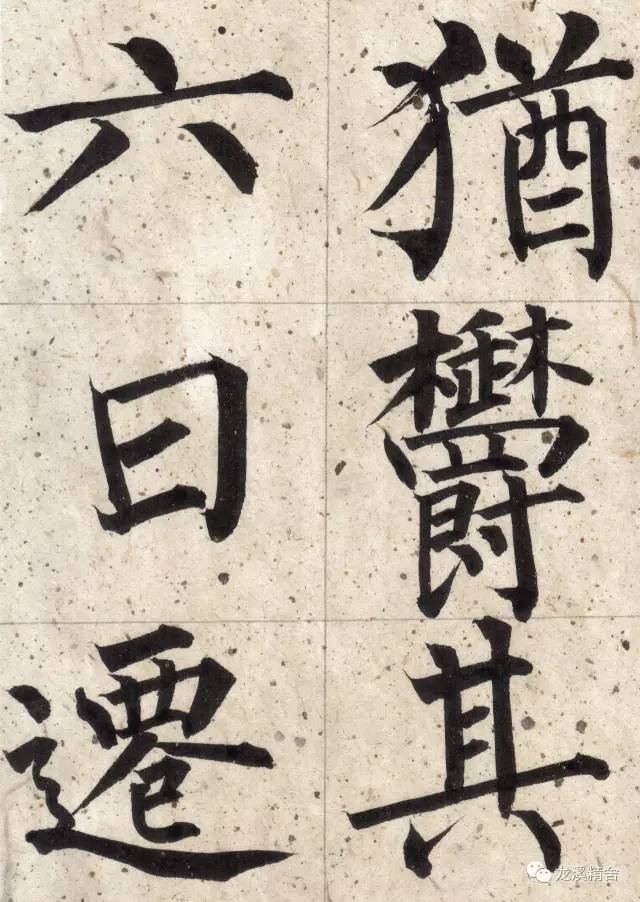 猶欝其
六曰遷
龙溪精舍